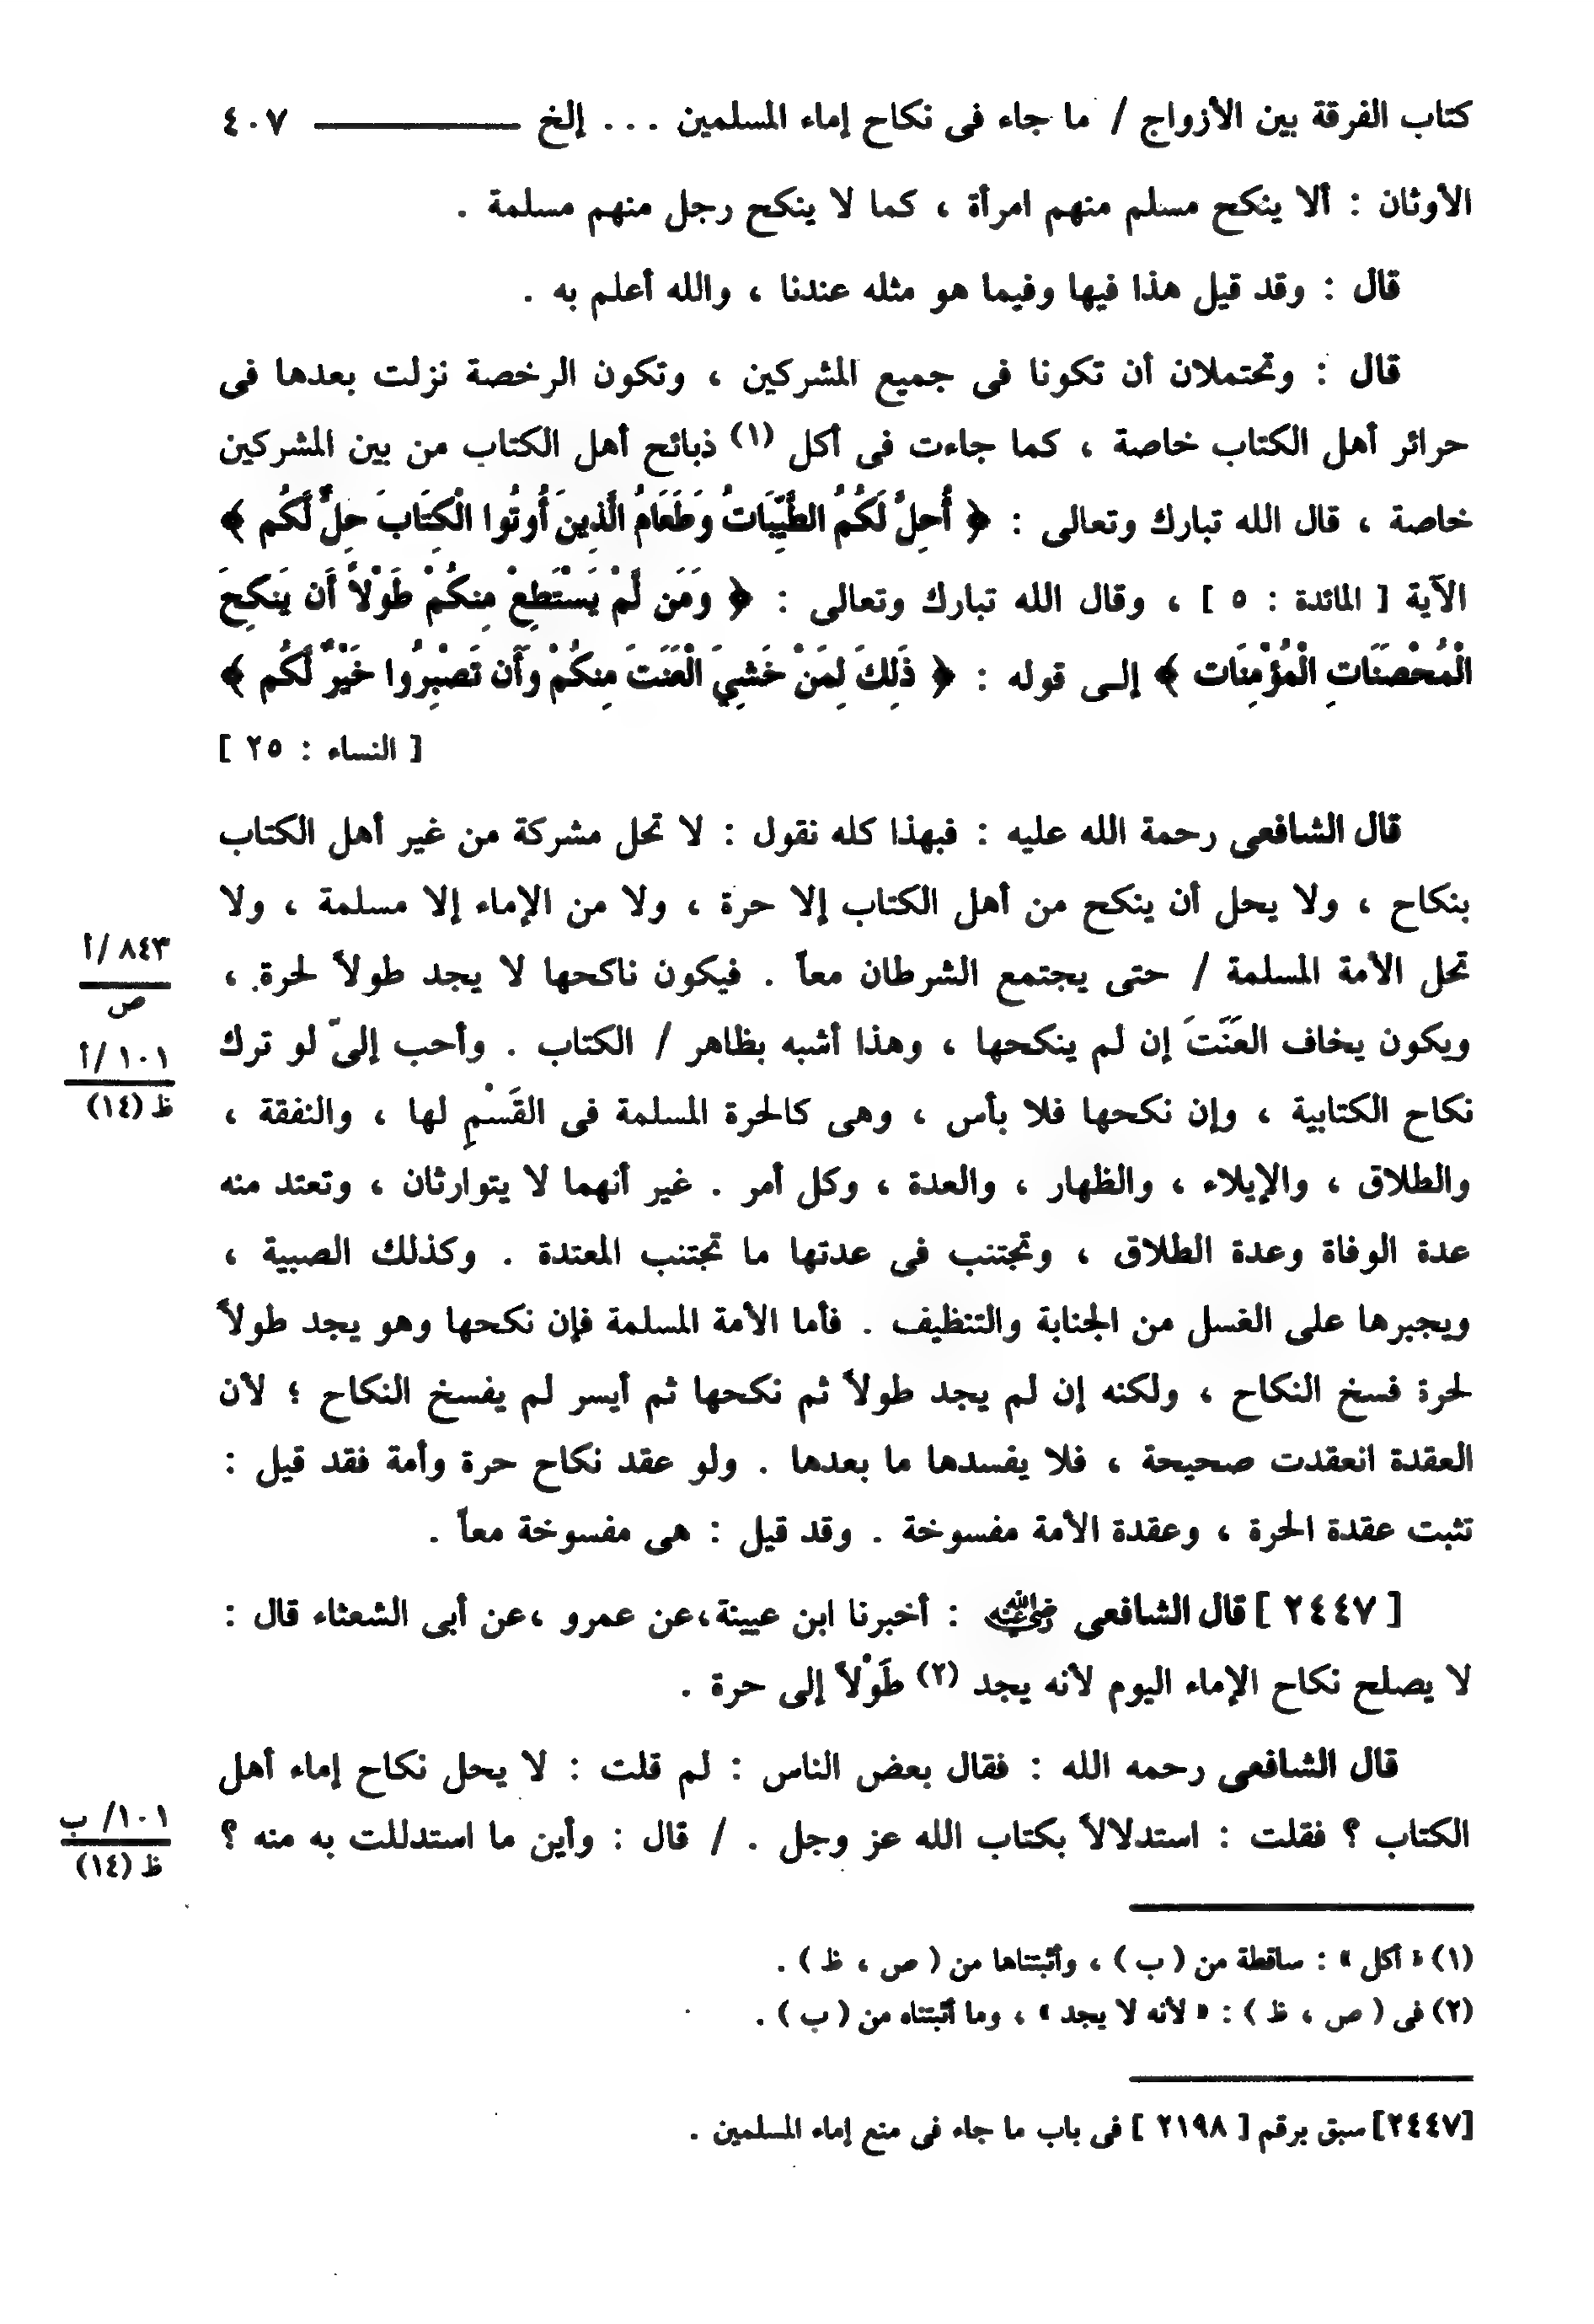 كتاب الفرقة بين الأزواج / ما جاء فى نكاح إماء المسلمين . . . إلخ ــــــــــ ٤٠٧
الأوثان : ألا ينكح مسلم منهم امرأة ، كما لا ينكح رجل منهم مسلمة .
قال : وقد قيل هذا فيها وفيما هو مثله عندنا ، والله أعلم به .
قال : وتحتملان أن تكونا فى جميع المشركين ، وتكون الرخصة نزلت بعدها فى
حرائر أهل الكتاب خاصة ، كما جاءت فى أكل (١) ذبائح أهل الكتاب من بين المشركين
خاصة ، قال الله تبارك وتعالى : ﴿ أُحِلَّ لَكُمُ الطَّيِّبَاتُ وَطَعَامُ الَّذِينَ أُوتُوا الْكِتَابَ حِلٌّ لَّكُم ﴾
الآية [ المائدة : ٥ ] ، وقال الله تبارك وتعالى : ﴿ وَمَن لَّمْ يَسْتَطِعْ مِنكُمْ طَوْلاً أَن يَنكِحَ
الْمُحْصَنَاتِ الْمُؤْمِنَات ﴾ إلـى قوله : ﴿ ذَلِكَ لِمَنْ خَشِيَ الْعَنَتَ مِنكُمْ وَأَن تَصْبِرُوا خَيْرٌ لَّكُم ﴾
[ النساء : ٢٥ ]
قال الشافعى رحمة الله عليه : فبهذا كله نقول : لا تحل مشركة من غير أهل الكتاب
بنكاح ، ولا يحل أن ينكح من أهل الكتاب إلا حرة ، ولا من الإماء إلا مسلمة ، ولا
تحل الأمة المسلمة / حتى يجتمع الشرطان معاً . فيكون ناكحها لا يجد طولاً لحرة ،
٨٤٣ /أ
ص
ويكون يخاف العَنَتَ إن لم ينكحها ، وهذا أشبه بظاهر / الكتاب . وأحب إلىّ لو ترك
١٠١ /أ
ظ (١٤)
نكاح الكتابية ، وإن نكحها فلا بأس ، وهى كالحرة المسلمة فى القَسْمِ لها ، والنفقة ،
والطلاق ، والإيلاء ، والظهار ، والعدة ، وكل أمر . غير أنهما لا يتوارثان ، وتعتد منه
عدة الوفاة وعدة الطلاق ، وتجتنب فى عدتها ما تجتنب المعتدة . وكذلك الصبية ،
ويجبرها على الغسل من الجنابة والتنظيف . فأما الأمة المسلمة فإن نكحها وهو يجد طولاً
لحرة فسخ النكاح ، ولكنه إن لم يجد طولاً ثم نكحها ثم أيسر لم يفسخ النكاح ؛ لأن
العقدة انعقدت صحيحة ، فلا يفسدها ما بعدها . ولو عقد نكاح حرة وأمة فقد قيل :
تثبت عقدة الحرة ، وعقدة الأمة مفسوخة . وقد قيل : هى مفسوخة معاً .
[ ٢٤٤٧ ] قال الشافعى رضي الله عنه : أخبرنا ابن عيينة،عن عمرو ،عن أبى الشعثاء قال :
لا يصلح نكاح الإماء اليوم لأنه يجد (٢) طَوْلاً إلى حرة .
قال الشافعى رحمه الله : فقال بعض الناس : لم قلت : لا يحل نكاح إماء أهل
الكتاب ؟ فقلت : استدلالاً بكتاب الله عز وجل . / قال : وأين ما استدللت به منه ؟
١٠١/ ب
ظ (١٤)
(١) « أكل » : ساقطة من ( ب ) ، وأثبتناها من ( ص ، ظ ) .
(٢) فى ( ص ، ظ ) : « لأنه لا يجد » ، وما أثبتناه من ( ب ) .
[٢٤٤٧] سبق برقم [ ٢١٩٨ ] فى باب ما جاء فى منع إماء المسلمين .